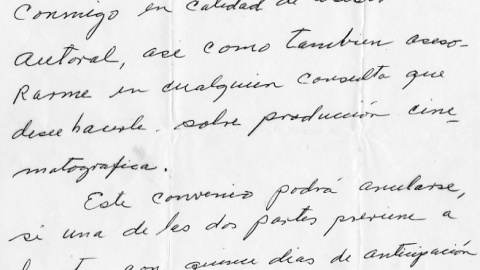 conmigo en calidad de
autoral, ase como tambien aseso-
rarme en cualquier consulta que
desee hacerle. sobre producción cine-
matografica.
Este convenio podrá anularse,
si una de las dos partes previene a
con quince dias de anticipación